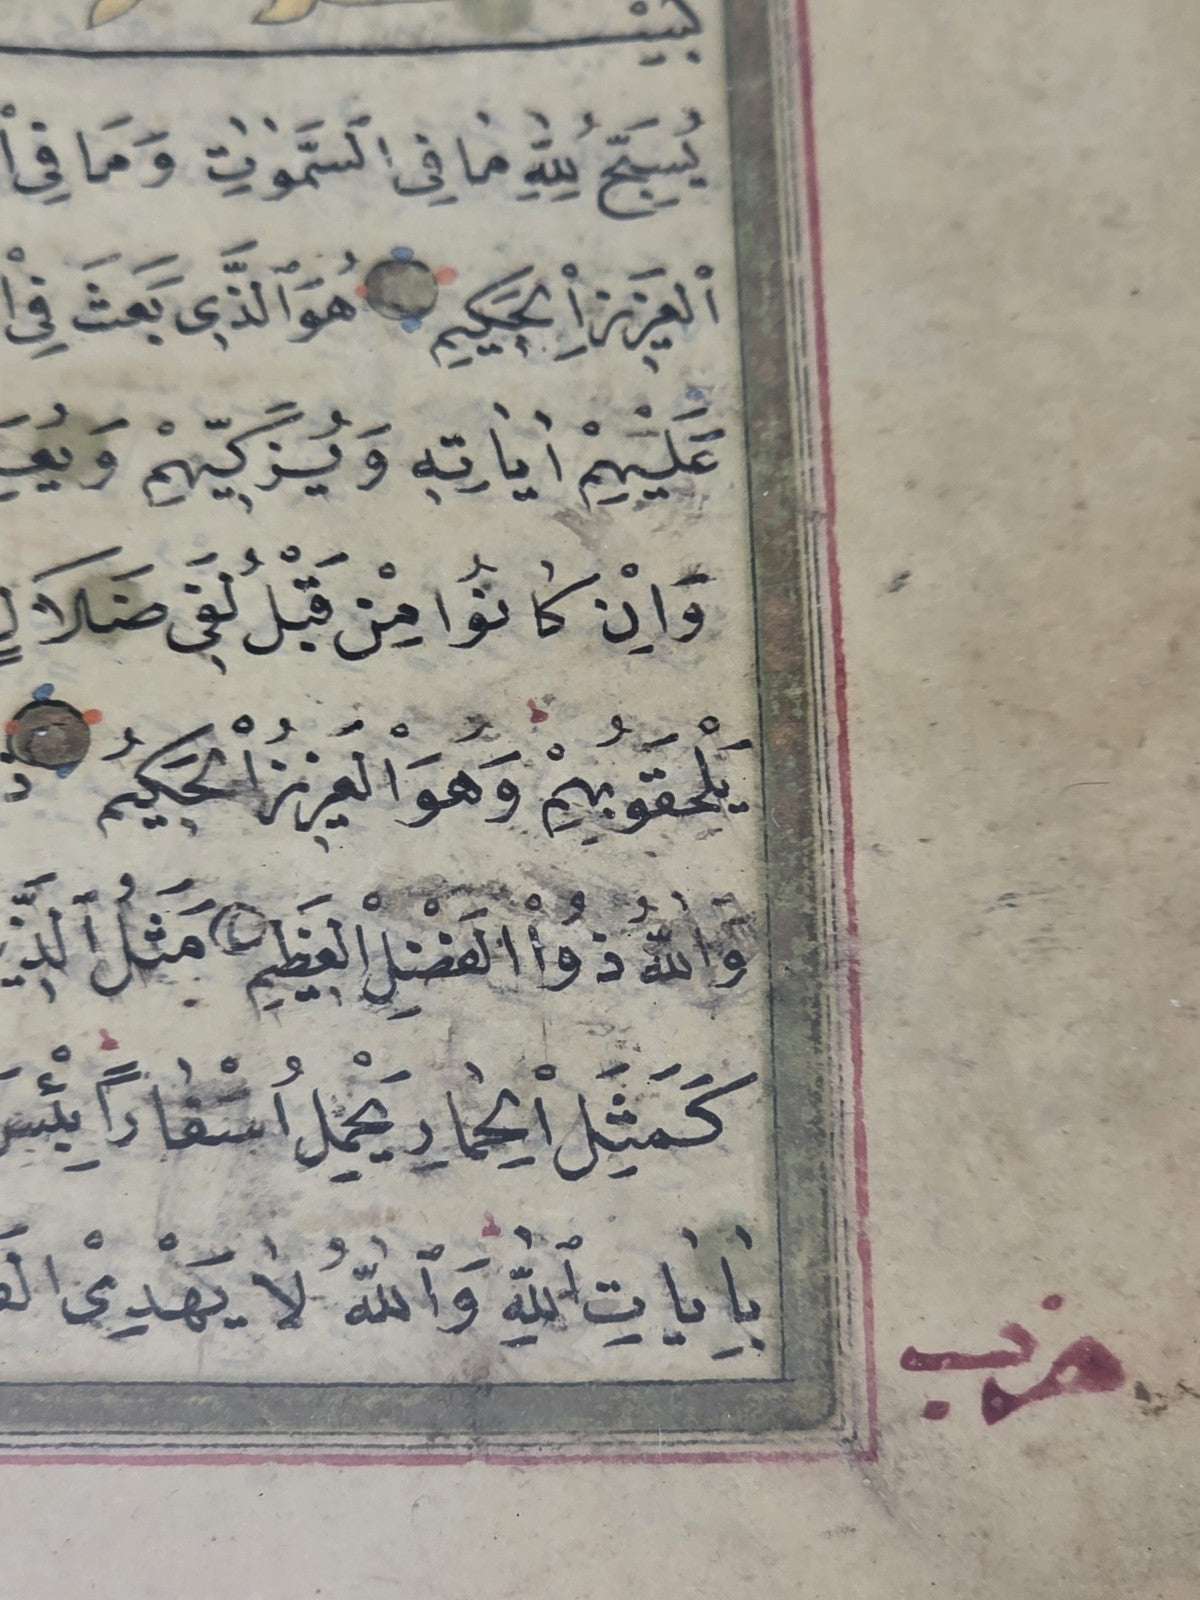 يُسَبِّحُ لِلّٰهِ مَا فِي السَّمٰوٰتِ وَمَا فِي
الْعَزِيزِ الْحَكِيمِ هُوَ الَّذِي بَعَثَ فِي
عَلَيْهِمْ اٰيَاتِهِ وَيُزَكِّيهِمْ
وَاِنْ كَانُوا مِنْ قَبْلُ لَفِي ضَلَالٍ
يَلْحَقُوا بِهِمْ وَهُوَ الْعَزِيزُ الْحَكِيمُ
وَاللّٰهُ ذُو الْفَضْلِ الْعَظِيمِ مَثَلُ
كَمَثَلِ الْحِمَارِ يَحْمِلُ اَسْفَارًا
بِاٰيَاتِ اللّٰهِ وَاللّٰهُ لَا يَهْدِي
حزب